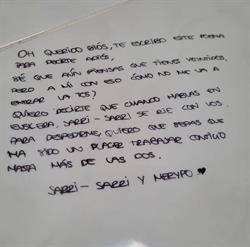 OH QUERIDO IÑÓS, TE ESCRIBO ESTE POEMA
PARA DECIRTE ADIÓS,
SÉ QUE AÚN PIENSAS QUE TIENES VEINTIDÓS,
PERO A MÍ CON ESO (CÓMO NO ME VA A
ENTRAR LA TOS)
QUIERO DECIRTE QUE CUANDO HABLAS EN
EUSKERA, SARRI-SARRI SE RIE CON VOS.
PARA DESPEDIRME, QUIERO QUE SEPAS QUE
HA SIDO UN PLACER TRABAJAR CONTIGO
HASTA MÁS DE LAS DOS.
SARRI-SARRI Y NERYPO ♥